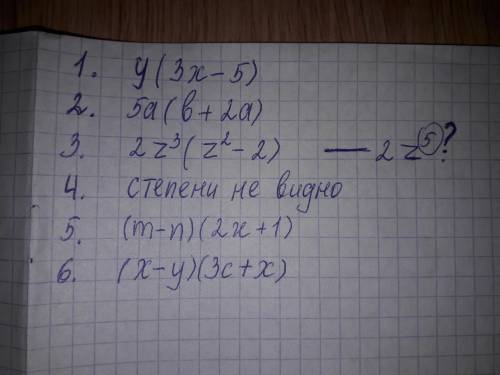 1. y(3x-5)
2. 5a(b+2a)
3. 2z³(z²-2) — 2z⁵?
4. степени не видно
5. (m-n)(2x+1)
6. (x-y)(3c+x)